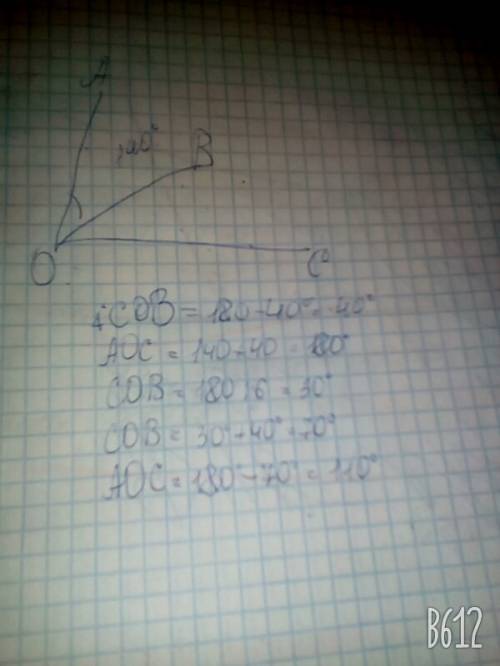 A
40°
B
O
C
COB = 180 - 40° = 40°
AOC = 140 - 40 = 180°
COB = 180 : 6 = 30°
COB = 30° + 40° = 70°
AOC = 180° - 70° = 110°
B612